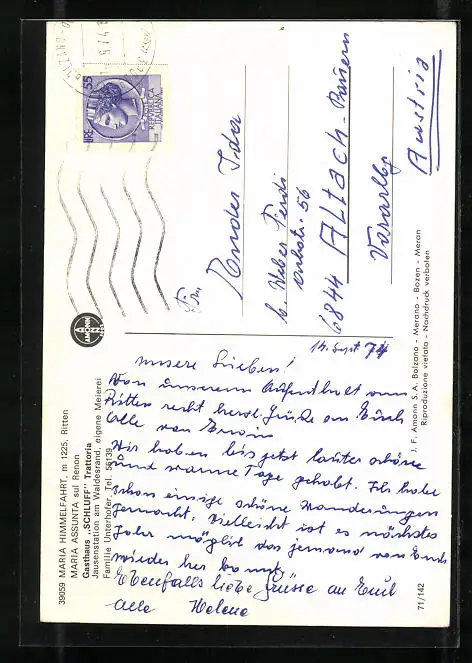 39059 MARIA HIMMELFAHRT, m 1225, Ritten
MARIA ASSUNTA sul Renon
Gasthaus „SCHLUFF" Trattoria
Jausenstation am Waldesrand, eigene Meierei
Familie Unterhofer, Tel. 56139
71/142
AMONN
J. F. Amonn S. A. Bolzano - Merano - Bozen - Meran
Riproduzione vietata - Nachdruck verboten
LIRE 55
REPVBBLICA
ITALIANA
14. Sept 74
Unsere Lieben!
Von unserem Aufenthalt am
Ritten recht herzl. Grüße an Euch
Alle von Erwin
Wir haben bis jetzt lauter schöne
und warme Tage gehabt. Ich habe
schon einige schöne Wanderungen
gemacht. Vielleicht ist es nächstes
Jahr möglich das jemand von Euch
wieder her kommt.
Ebenfalls liebe Grüsse an Euch
Alle Helene
Ida
b. Weber Ferdi
56
6844 Altach-Bauern
Vorarlbg
Austria